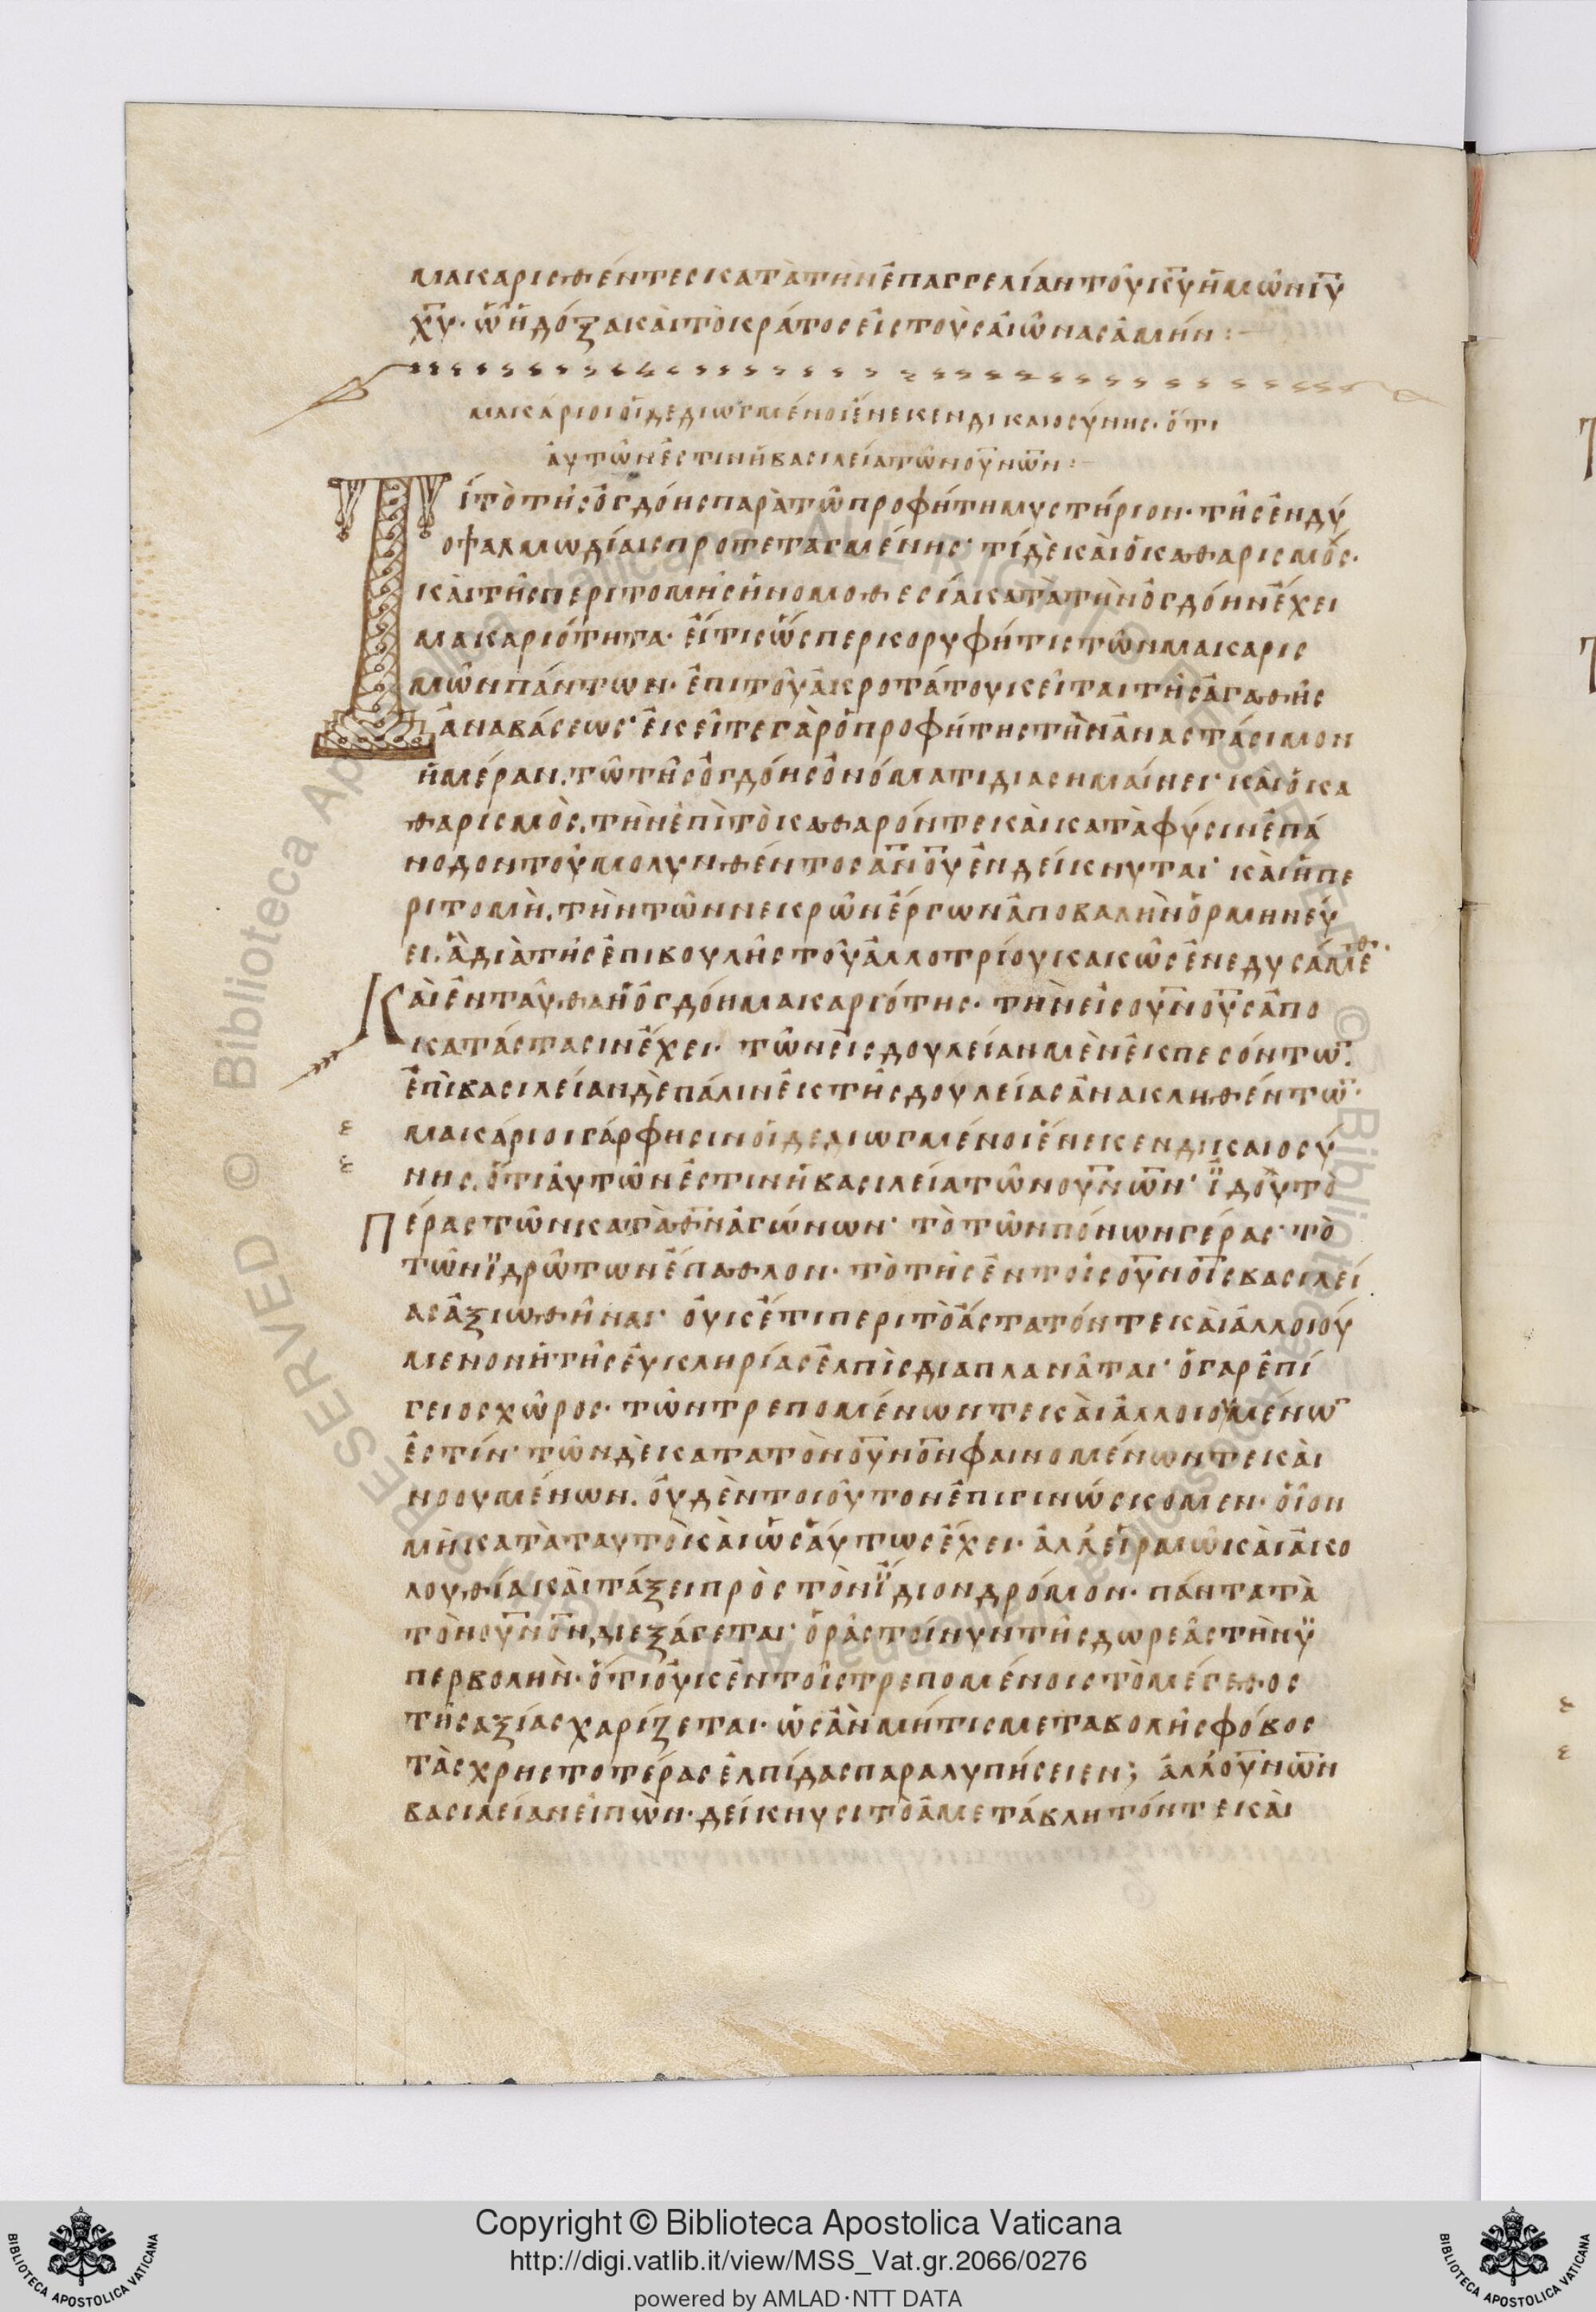 μακαρισθέντες κατὰ τὴν ἐπαγγελίαν τοῦ κ̅υ̅ ἡμῶν ι̅υ̅
χ̅υ̅· ὧ ἡ δόξα καὶ τὸ κράτος εἰς τοὺς αἰῶνας ἀμήν:–
μακάριοι οἱ δεδιωγμένοι ἕνεκεν δικαιοσύνης· ὅτι
αὐτῶν ἐστιν ἡ βασιλεία τῶν ο̅υ̅ν̅ω̅ν̅:–
Τί τὸ τῆς ὀγδόης παρὰ τῶ προφήτη μυστήριον· τῆς ἐν δύ
ο ψαλμωδίαις προτεταγμένης· τί δὲ καὶ ὁ καθαρισμός·
καὶ τῆς περιτομῆς ἡ νομοθεσία κατὰ τὴν ὀγδόην ἔχει
μακαριότητα· εἴτις ὥσπερ κορυφή τις τῶν μακαρις
μῶν πάντων· ἐπι τοῦ ἀκροτάτου κεῖται τῆς ἀγαθῆς
ἀναβάσεως· ἐκεῖ τε γὰρ ὁ προφήτης τὴν ἀναστάσιμον
ἡμέραν. τῶ τῆς ὀγδόης ὀνόματι διασημαίνει· καὶ ὁ κα
θαρισμὸς. τὴν ἐπὶ τὸ καθαρόν τε καὶ κατὰ φύσιν ἐπά
νοδον τοῦ μολυνθέντος α̅ν̅ο̅υ̅ ἐνδείκνυται· καὶ ἡ πε
ριτομὴ. τὴν τῶν νεκρῶν ἔργων ἀποβαλὴν ὁρμηνεύ
ει. ἃ διὰ τῆς ἐπιβουλῆς τοῦ ἀλλοτρίου κακῶς ἐνεδυσάμεθ·
Καὶ ἐνταῦθα ἡ ὀγδόη μακαριότης· τὴν εἰς ο̅υ̅ν̅ο̅υ̅ς̅ ἀπο
κατάστασιν ἔχει· τῶν εἰς δουλείαν μὲν ἐκπεσόντω̅.
ἐπὶ βασιλείαν δὲ πάλιν ἐκ τῆς δουλείας ἀνακληθέντω̅·
μακάριοι γάρ φησιν οἱ δεδιωγμένοι ἕνεκεν δικαιοσύ
νης. ὅτι αὐτῶν ἐστιν ἡ βασιλεία τῶν ο̅υ̅ν̅ω̅ν̅· ϊδοὺ τὸ
Πέρας τῶν κατὰ θ̅ν̅ ἀγώνων· τὸ τῶν πόνων γέρας· τὸ
τῶν ϊδρώτων ἔπαθλον· τὸ τῆς ἐν τοῖς ο̅υ̅ν̅ο̅ι̅ς̅ βασιλεί
ας ἀξιωθῆναι· οὐκέτι περι τὸ ἄστατόν τε καὶ ἀλλοιού
μενον ἡ τῆς εὐκληρίας ἐλπὶς διαπλανᾶται· ὁ γαρ ἐπί
γειος χῶρος· τῶν τρεπομένων τε καὶ ἀλλοιουμένω̅
ἐστίν· τῶν δὲ κατα τὸν ο̅υ̅ν̅ο̅ν̅ φαινομένων τε καὶ
νοουμένων. οὐδὲν τοιοῦτον ἐπιγινώσκομεν· οἷον
μὴ κατὰ ταυτὸ καὶ ὡσαύτως ἔχει· ἀλλ' εἱρμῶ καὶ ἀκο
λουθία καὶ τάξει πρὸς τὸν ΐδιον δρόμον· πάντα τὰ
τὸν ο̅υ̅ν̅ο̅ν̅ διεξάγεται· ὁρᾶς τοίνυν τῆς δωρεᾶς τὴν ὑ
περβολήν· ὅτι οὐκ ἐν τοῖς τρεπομένοις τὸ μέγεθος
τῆς αξίας χαρίζεται· ὡς ἂν μήτις μεταβολῆς φόβος
τὰς χρηστοτέρας ἐλπίδας παραλυπήσειεν; ἀλλ' ο̅υ̅ν̅ω̅ν̅
βασιλείαν εἰπὼν· δείκνυσι τὸ ἀμετάβλητόν τε καὶ
Copyright © Biblioteca Apostolica Vaticana
http://digi.vatlib.it/view/MSS_Vat.gr.2066/0276
powered by AMLAD·NTT DATA